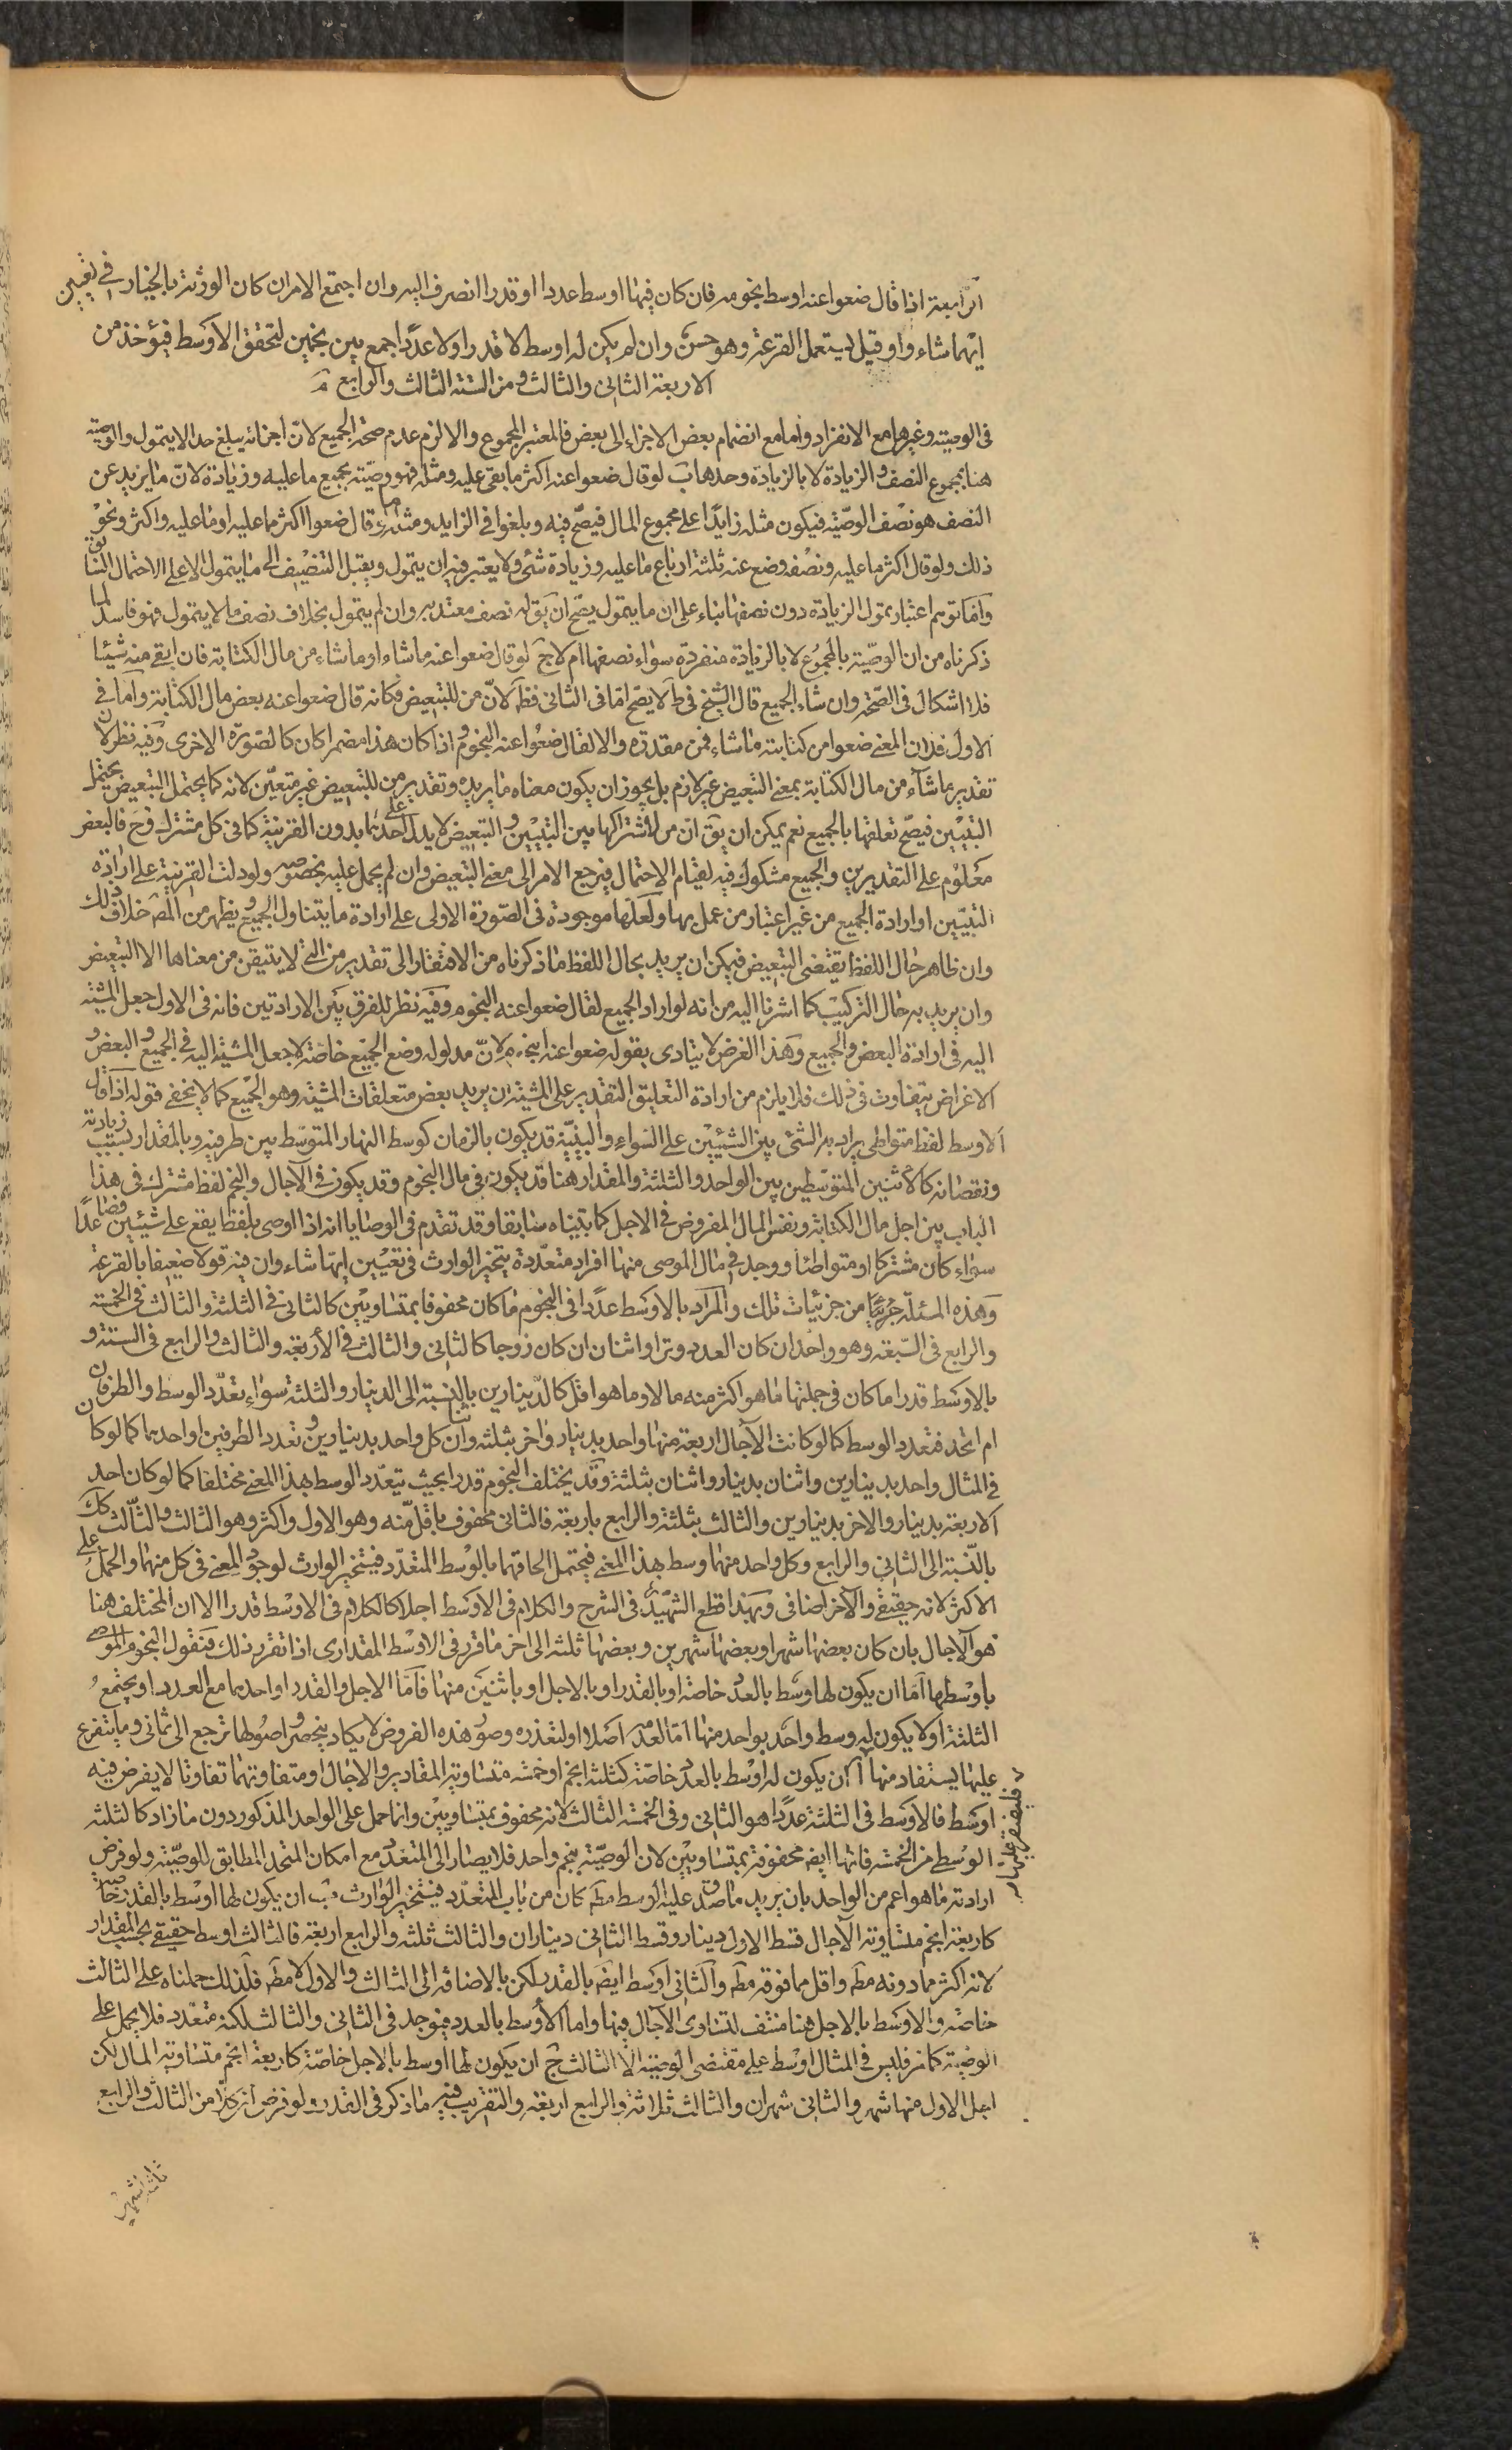 الرابعة اذا قال ضعوا عنه اوسط نجومه فان كان فيها اوسط عددا او قدرا انصرف اليه وان اجتمع الامران كان الورثة بالخيار في تعيين
ايهما شاءوا وقيل يستعمل القرعة وهو حسن وان لم يكن له اوسط لا قدرا ولا عددا جمع بين نجمين لتحقق الاوسط فيؤخذ من
الاربعة الثاني والثالث ومن الستة الثالث والرابع
في الوصية وغيرها مع الانفراد واما مع انضمام بعض الاجزاء الى بعض فالمعتبر المجموع والا لزم عدم صحة الجميع لان اجزائه يبلغ حدا لا يتمول والوصية
هنا بمجموع النصف والزيادة لا بالزيادة وحدها ب لو قال ضعوا عنه اكثر ما بقي عليه ومثله فهو وصية بجميع ما عليه وزيادة لان ما يزيد عن
النصف هو نصف الوصية فيكون مثله زايدا على مجموع المال فيصح فيه ويلغوا في الزايد ومثله ما لو قال ضعوا اكثر ما عليه او ما عليه واكثر ونحو
ذلك ولو قال اكثر ما عليه ونصفه وضع عنه ثلثة ارباع ما عليه وزيادة شئ ولا يعتبر فيه ان يتمول ويقبل التنصيف الى ما يتمول الا على الاحتمال السابق
وانما توهم اعتبار تمول الزيادة دون نصفها بناء على ان ما يتمول يصح ان يق له نصف معتد به وان لم يتمول بخلاف نصف ما لا يتمول فهو فاسد لما
ذكرناه من ان الوصية بالمجموع لا بالزيادة منفردة سواء نصفها ام لا ج لو قال ضعوا عنه ما شاء او ما شاء من مال الكتابة فان ابقى منه شيئا
فلا اشكال في الصحة وان شاء الجميع قال الشيخ في ط لا يصح اما في الثاني فظ لان من للتبعيض فكانه قال ضعوا عنه بعض مال الكتابة واما في
الاول فلان المعنى ضعوا من كتابته ما شاء فمن مقدرة والا لقال ضعوا عنه النجوم واذا كان هذا مضمرا كان كالصورة الاخرى وفيه نظر لان
تقدير ما شاء من مال الكتابة بمعنى التبعيض غير لازم بل يجوز ان يكون معناه ما يريده وتقدير من للتبعيض غير متعين لانه كما يحتمل التبعيض يحتمل
التبيين فيصح تعلقها بالجميع نعم يمكن ان يق ان من لاشتراكها بين التبيين والتبعيض لا يدل على احدهما بدون القرينة كما في كل مشترك وح فالبعض
معلوم على التقديرين والجميع مشكوك فيه لقيام الاحتمال فيرجع الامر الى معنى التبعيض وان لم يحمل عليه بخصوصه ولو دلت القرينة على ارادة
التبيين او ارادة الجميع من غير اعتبار من عمل بها ولعلها موجودة في الصورة الاولى على ارادة ما يتناول الجميع ويظهر من المص خلاف ذلك
وان ظاهر حال اللفظ يقتضي التبعيض فيمكن ان يريد بحال اللفظ ما ذكرناه من الافتقار الى تقدير من التي لا يتيقن من معناها الا التبعيض
وان يريد به حال التركيب كما اشرنا اليه من انه لو اراد الجميع لقال ضعوا عنه النجوم وفيه نظر للفرق بين الارادتين فانه في الاول جعل المشية
اليه في ارادة البعض والجميع وهذا الغرض لا يتادى بقوله ضعوا عنه النجوم لان مدلوله وضع الجميع خاصة لا جعل المشية اليه في الجميع والبعض و
الاغراض يتفاوت في ذلك فلا يلزم من ارادة التعليق التقدير على المشية ان يريد بعض متعلقات المشية وهو الجميع كما لا يخفى قوله اذا قال
الاوسط لفظ متواطي يراد به الشئ بين الشيئين على السواء والبينية قد يكون بالزمان كوسط النهار المتوسط بين طرفيه وبالمقدار بسبب زيادته
ونقصانه كالاثنين المتوسطين بين الواحد والثلثة والمقدار هنا قد يكون في مال النجوم وقد يكون في الآجال والنجم لفظ مشترك في هذا
الباب بين اجل مال الكتابة ونفس المال المفروض في الاجل كما بيناه سابقا وقد تقدم في الوصايا انه اذا اوصى بلفظ يقع على شيئين فصاعدا
سواء كان مشتركا او متواطئا ووجد في مال الموصى منها افراد متعددة يتخير الوارث في تعيين ايها شاء وان فيه قولا ضعيفا بالقرعة
وهذه المسئلة جزئي من جزئيات تلك والمراد بالاوسط عددا في النجوم ما كان محفوفا بمتساويين كالثاني في الثلثة والثالث في الخمسة
والرابع في السبعة وهو واحد ان كان العدد وترا واثنان ان كان زوجا كالثاني والثالث في الاربعة والثالث والرابع في الستة و
بالاوسط قدرا ما كان في جملتها ما هو اكثر منه مالا وما هو اقل كالدينارين بالنسبة الى الدينار والثلثة سواء تعدد الوسط والطرفان
ام اتحد فتعدد الوسط كما لو كانت الآجال اربعة منها واحد بدينار واخر بثلثة واثنان كل واحد بدينارين وتعدد الطرفين او احدهما كما لو كان
في المثال واحد بدينارين واثنان بدينار واثنان بثلثة وقد يختلف النجوم قدرا بحيث يتعدد الوسط بهذا المعنى مختلفا كما لو كان احد
الاربعة بدينار والاخر بدينارين والثالث بثلثة والرابع باربعة فالثاني محفوف باقل منه وهو الاول واكثر وهو الثالث والثالث كك
بالنسبة الى الثاني والرابع وكل واحد منهما وسط بهذا المعنى فيحتمل الحاقهما بالوسط المتعدد فيتخير الوارث لوجود المعنى في كل منهما والحمل على
الاكثر لانه حقيقي والآخر اضافي وبهذا قطع الشهيد في الشرح والكلام في الاوسط اجلا كالكلام في الاوسط قدرا الا ان المختلف هنا
هو الآجال بان كان بعضها شهرا وبعضها شهرين وبعضها ثلثة الى اخر ما قرر في الاوسط المقداري اذا تقرر ذلك فنقول النجوم الموصى
باوسطها اما ان يكون لها وسط بالعدد خاصة او بالقدر او بالاجل او باثنين منها فاما الاجل والقدر او احدهما مع العدد او يجتمع
الثلثة او لا يكون له وسط واحد بواحد منها اما لعدمه اصلا او لتعذره وصور هذه الفروض لا يكاد ينحصر واصولها ترجع الى ثماني وما يتفرع
عليها يستفاد منها ا ان يكون له اوسط بالعدد خاصة كثلثة انجم او خمسة متساوية المقادير والاجال او متفاوتهما تفاوتا لا يفرض فيه
اوسط فالاوسط في الثلثة عددا هو الثاني وفي الخمسة الثالث لانه محفوف بمتساويين وانما حمل على الواحد المذكور دون ما زاد كالثلثة
الوسطى من الخمسة فانها ايضا محفوفة بمتساويين لان الوصية بنجم واحد فلا يصار الى المتعدد مع امكان المتحد المطابق للوصية ولو فرض
ارادته ما هو اعم من الواحد بان يريد ما صدق عليه الوسط مط كان من باب المتعدد فيتخير الوارث ب ان يكون لها اوسط بالقدر خاصة
كاربعة انجم متساوية الآجال قسط الاول دينار وقسط الثاني ديناران والثالث ثلثة والرابع اربعة فالثالث اوسط حقيقي بحسب المقدار
لانه اكثر مما دونه مط واقل مما فوقه مط والثاني اوسط ايضا بالقدر لكن بالاضافة الى الثالث والاول لا مط فلذلك حملناه على الثالث
خاصة والاوسط بالاجل هنا منتف لتساوي الآجال فيها واما الاوسط بالعدد فيوجد في الثاني والثالث لكنه متعدد فلا يحمل على
الوصية كما مر فليس في المثال اوسط على مقتضى الوصية الا الثالث ج ان يكون لها اوسط بالاجل خاصة كاربعة انجم متساوية المال لكن
اجل الاول منها شهر والثاني شهران والثالث ثلاثة والرابع اربعة والتقريب فيه ما ذكر في القدر ولو فرض ان كلا من الثالث والرابع
ثلثة اشهر